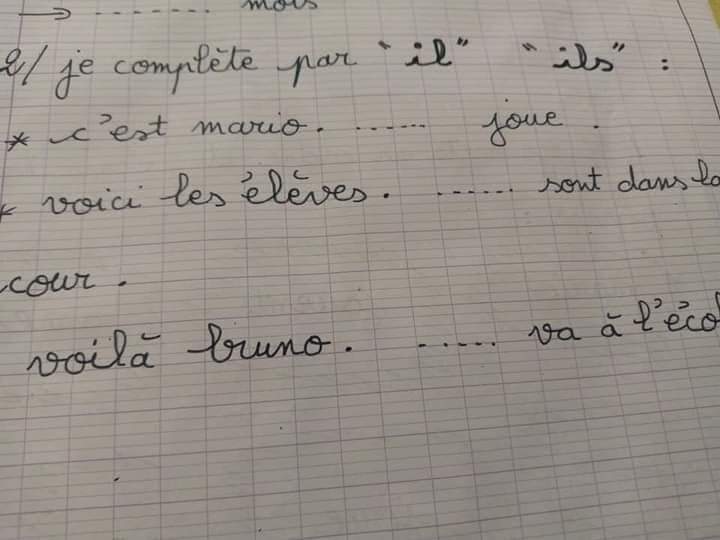 → ........ mois
2/ je complète par "il" "ils" :
* c'est mario. ....... joue.
* voici les élèves. ....... sont dans la
cour.
voilà bruno. ...... va à l'éco